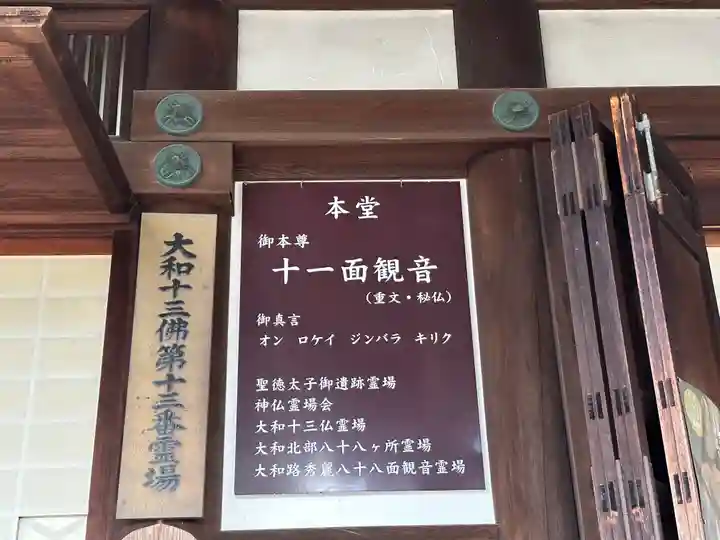 本堂
御本尊
十一面観音
（重文・秘仏）
御真言
オン ロケイ ジンバラ キリク
聖徳太子御遺跡霊場
神仏霊場会
大和十三仏霊場
大和北部八十八ヶ所霊場
大和路秀麗八十八面観音霊場
大和十三佛第十三番霊場